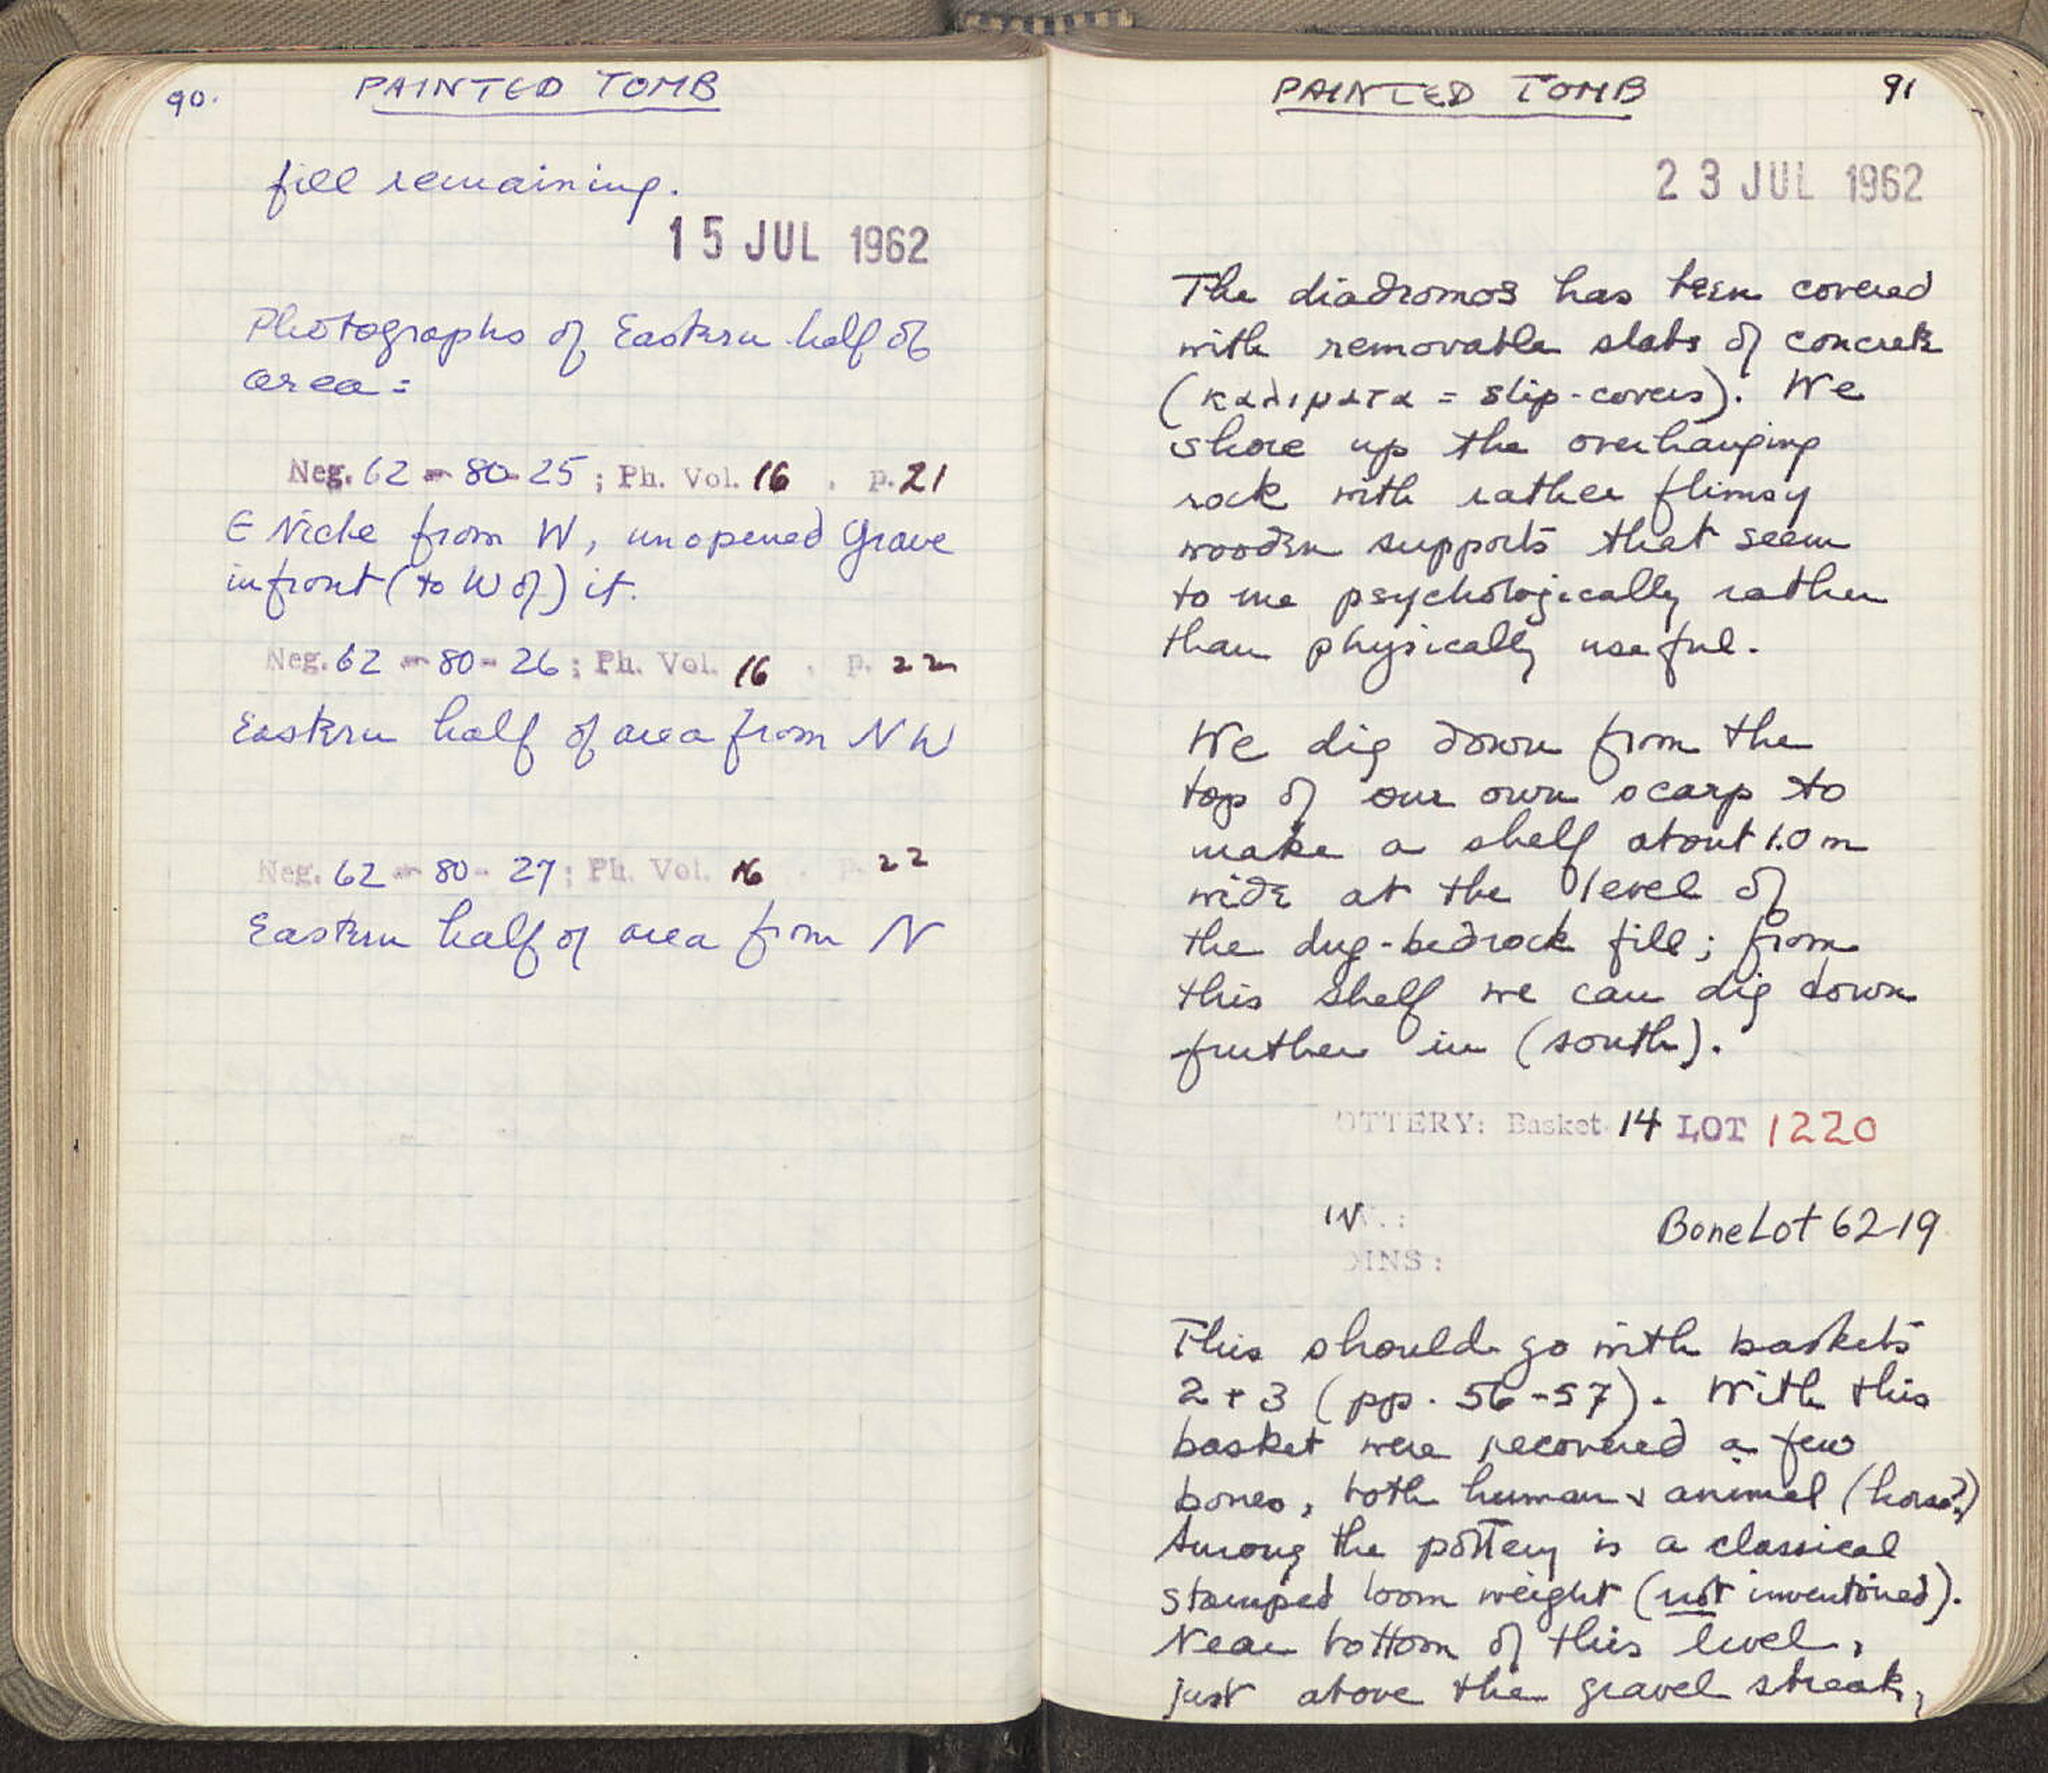 90.
PAINTED TOMB
fill remaining.
15 JUL 1962
Photographs of Eastern half of
area =
Neg. 62 - 80-25 ; Ph. Vol. 16 . p. 21
E Niche from W, unopened Grave
in front (to W of) it.
Neg. 62 - 80 - 26 ; Ph. Vol. 16 . p. 22
Eastern half of area from NW
Neg. 62 - 80 - 27 ; Ph. Vol. 16 . p. 22
Eastern half of area from N
PAINTED TOMB
91
23 JUL 1962
The diadromos has been covered
with removable slabs of concrete
(καλιματα = slip-covers). We
shore up the overhanging
rock with rather flimsy
wooden supports that seem
to me psychologically rather
than physically useful.
We dig down from the
top of our own scarp to
make a shelf about 1.0 m
wide at the level of
the dug-bedrock fill; from
this shelf we can dig down
further in (south).
OTTERY: Basket 14 LOT 1220
INV.:
Bone Lot 62-19
OINS:
This should go with baskets
2 + 3 (pp. 56-57). With this
basket were recovered a few
bones, both human & animal (horse?)
Among the pottery is a classical
stamped loom weight (not inventoried).
Near bottom of this level,
just above the gravel streak,